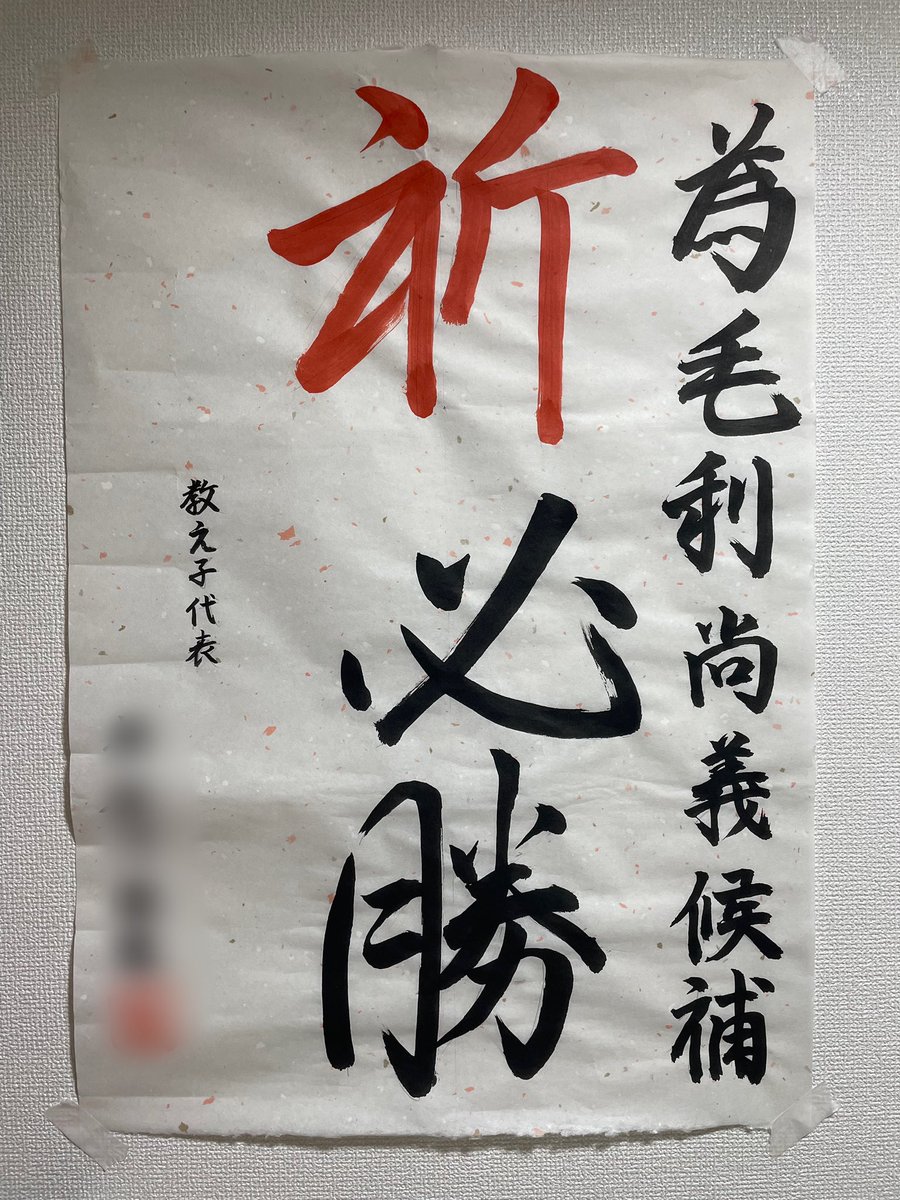 為毛利尚義候補
祈必勝
教え子代表